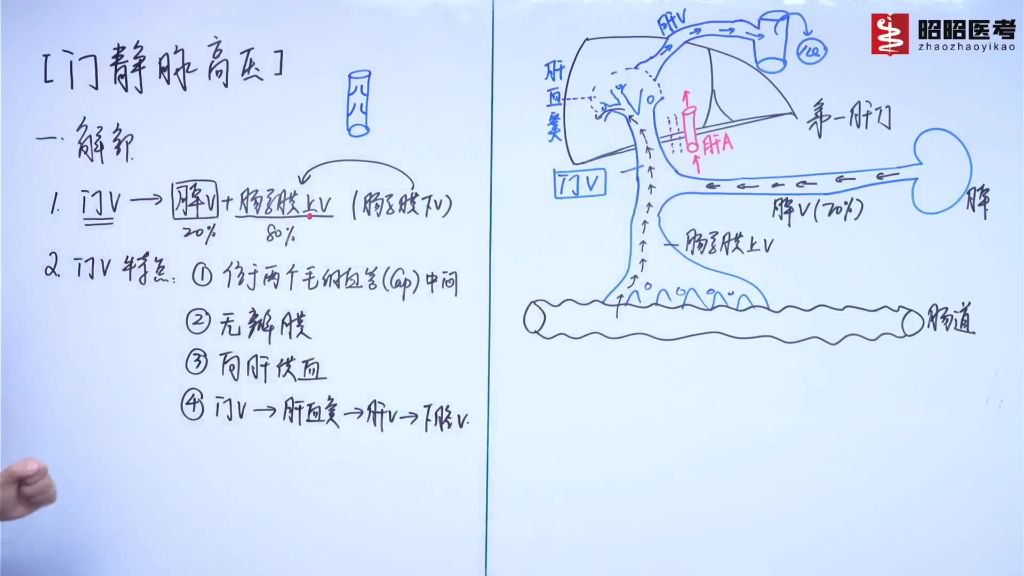 [门静脉高压]
一.解剖
1. 门V → 脾V + 肠系膜上V (肠系膜下V)
20% 80%
2. 门V特点: ① 位于两个毛细血管(Cap)中间
② 无瓣膜
③ 向肝供血
④ 门V → 肝血窦 → 肝V → 下腔V.
昭昭医考
zhaozhaoyikao
肝V
心
肝血窦
第一肝门
肝A
门V
脾V(20%)
脾
肠系膜上V
肠道